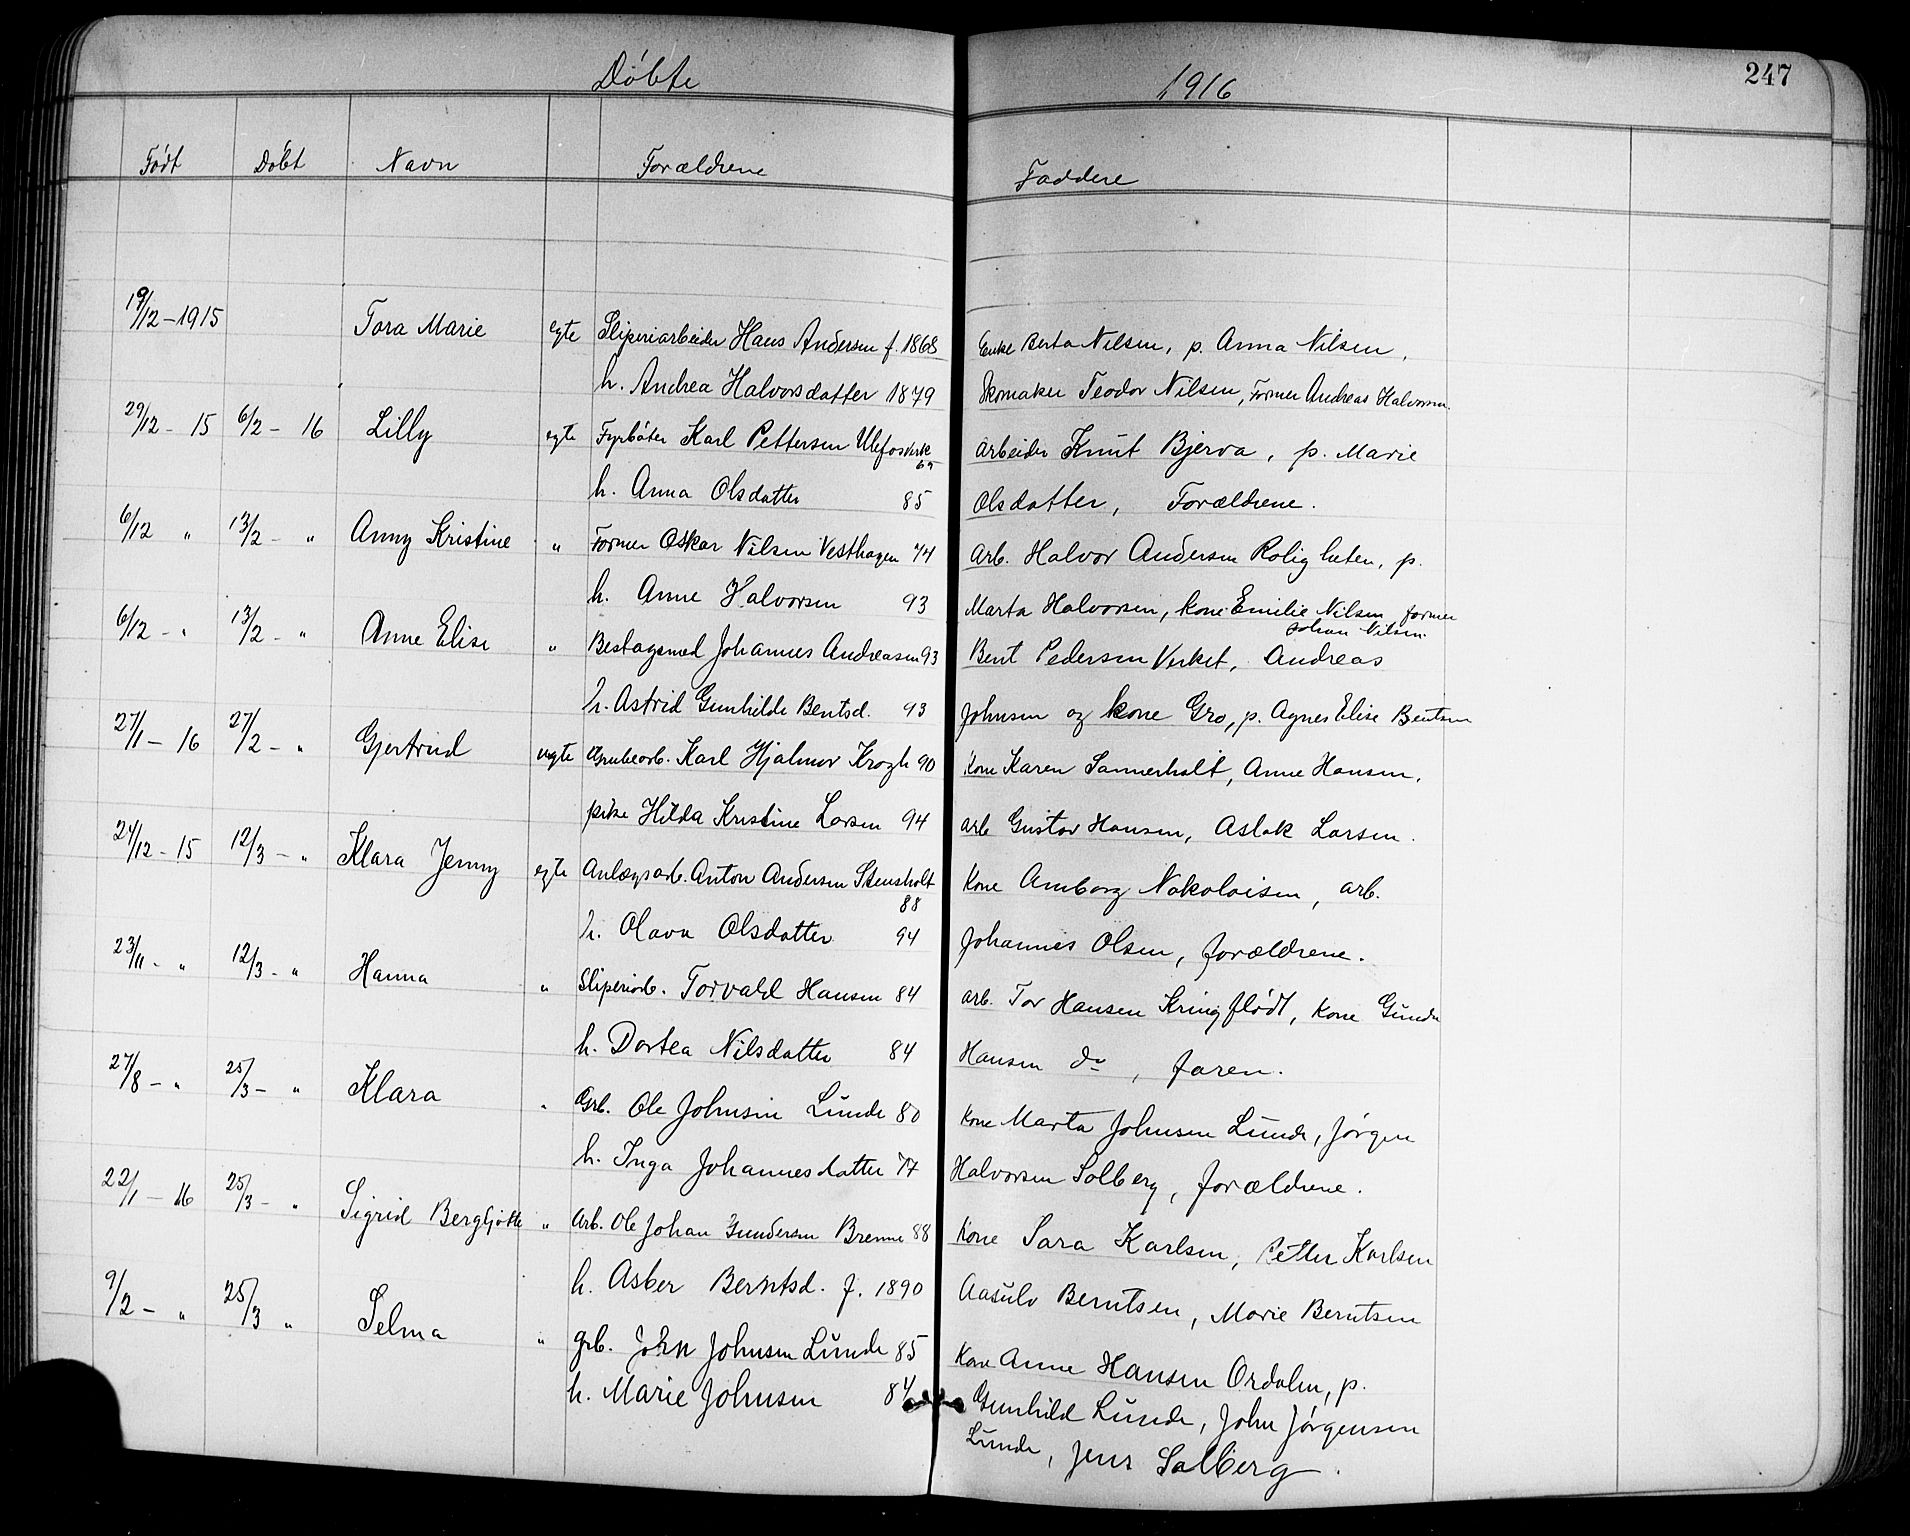 Døbte 1916 247
Født Døbt Navn Forældrene Faddere
19/12 - 1915 Tora Marie egte Sliperiarbeider Hans Andersen f. 1868 Enke Berta Nilsen, p. Anna Nilsen,
h. Andrea Halvorsdatter 1879 Skomaker Teodor Nilsen, Former Andreas Halvorsen.
29/12 - 15 6/2 - 16 Lilly egte Fyrbøter Karl Pettersen Ulefosverk Arbeider Knut Bjerva, p. Marie
h. Anna Olsdatter 85 Olsdatter, Forældrene.
6/12 " 13/2 - " Anny Kristine " Former Oskar Nilsen Vesthagen 74 Arb. Halvor Andersen Roligheten, p.
h. Anne Halvorsen 93 Marta Halvorsen, kone Emilie Nilsen former
Johan Nilsen.
6/12 - " 13/2 - " Anne Elise " Johannes Andreasen 93 Bent Pedersen Verket, Andreas
h. Astrid Gunhilde Bentsd. 93 Johnsen og kone Gro, p. Agnes Elise Bentsen
27/1 - 16 27/2 - " Gjertrud uegte Grubearb. Karl Hjalmar Krogh 90 Kone Karen Sannerholt, Anne Hansen,
pike Hilda Kristine Larsen 94 arb Gustav Hansen, Aslak Larsen.
24/12 - 15 12/3 - " Klara Jenny egte Anlægsarb. Anton Andersen Stensholt Kone Amborg Nokolaisen, arb.
88
h. Olava Olsdatter 94 Johannes Olsen, forældrene.
23/11 - " 12/3 - " Hanna " Sliperiarb. Torvald Hansen 84 arb. Tor Hansen Kringflødt, Kone Gunda
h. Dortea Nilsdatter 84 Hansen do, faren.
27/8 - " 25/3 - " Klara " Grb. Ole Johnsen Lunde 80 Kone Marta Johnsen Lunde, Jørgen
h. Inga Johannesdatter 77 Halvorsen Solberg, forældrene.
22/1 - 16 25/3 - " Sigrid Bergljotte " Arb. Ole Johan Gundersen Brenne 88 Kone Sara Karlsen, Petter Karlsen
h. Asber Berntsd. f. 1890 Aasulv Berntsen, Marie Berntsen
9/2 - " 25/3 " Selma " grb. John Johnsen Lunde 85 Kone Anne Hansen Ordalen, p.
h. Marie Johnsen 84 Gunhild Lunde, John Jørgensen
Lunde, Jens Solberg.